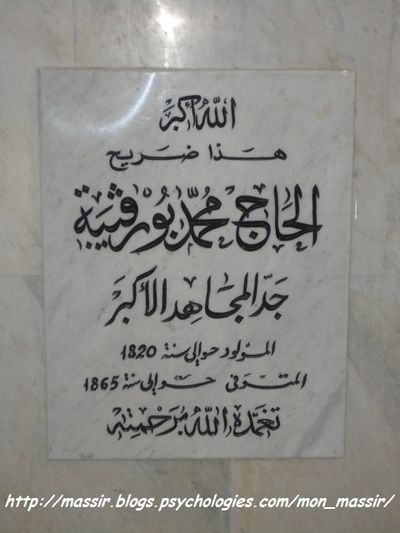 الله أكبر
هذا ضريح
الحاج محمد بورڤيبة
جد المجاهد الأكبر
المولود حوالي سنة 1820
المتوفى حوالي سنة 1865
تغمده الله برحمته
http://massir.blogs.psychologies.com/mon_massir/